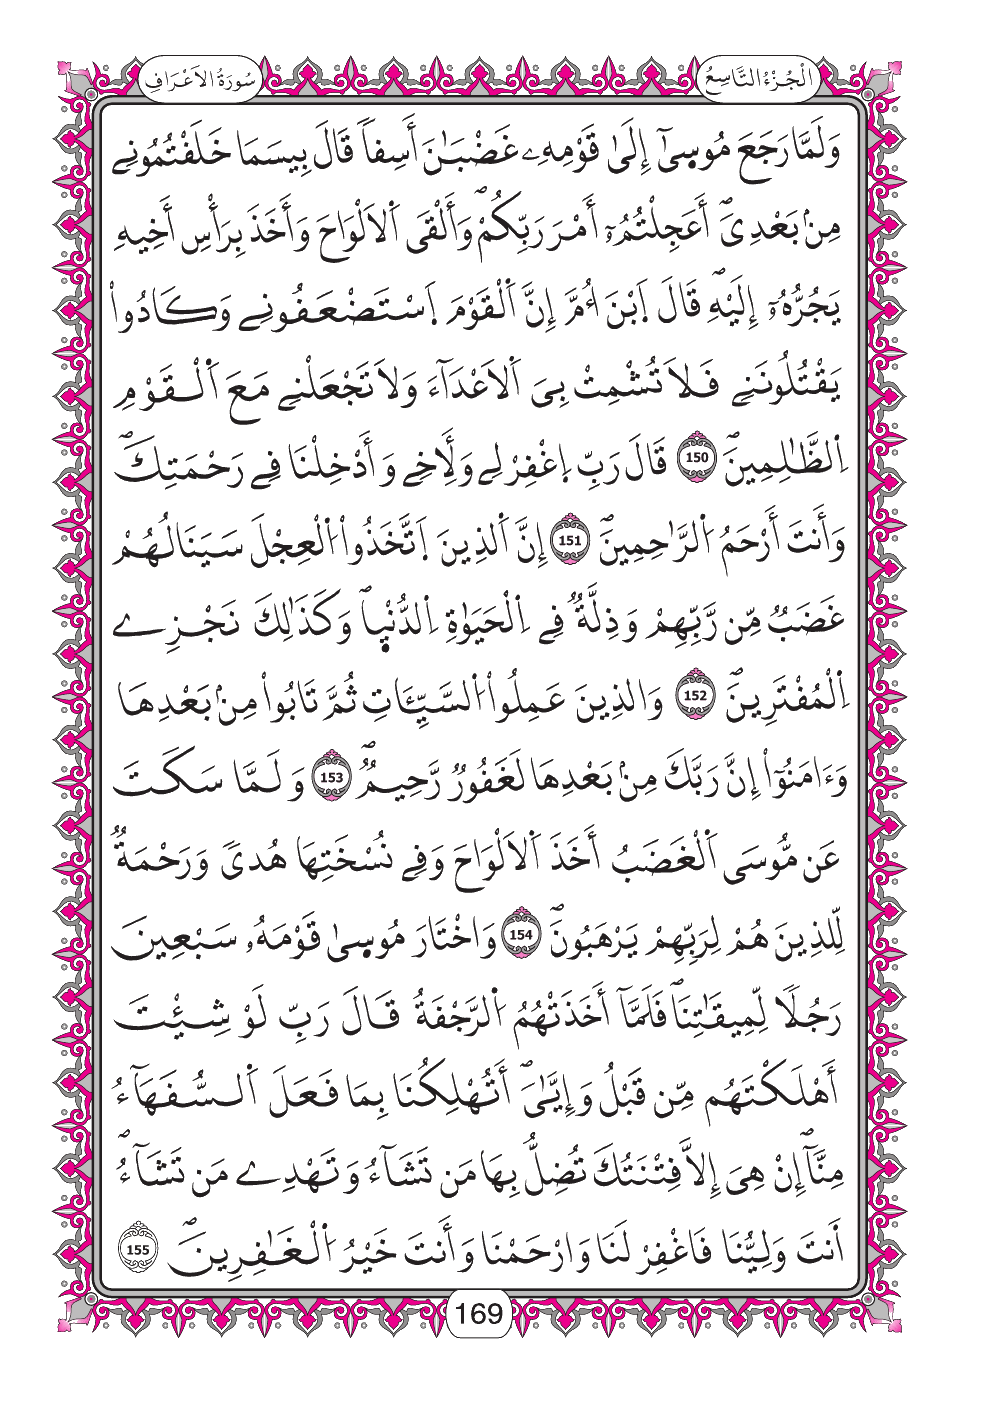 الْجُزْءُ التَّاسِعُ
سُورَةُ الاَعْرَافِ
وَلَمَّا رَجَعَ مُوسۭيٰٓ إِلَيٰ قَوْمِهِۦ غَضْبَٰنَ أَسِفاٗ قَالَ بِيسَمَا خَلَفْتُمُونِے
مِنۢ بَعْدِيَۖ أَعَجِلْتُمُۥٓ أَمْرَ رَبِّكُمْۖ وَأَلْقَي اَ۬لَالْوَاحَ وَأَخَذَ بِرَأْسِ أَخِيهِ
يَجُرُّهُۥٓ إِلَيْهِۖ قَالَ اَ۪بْنَ أُمَّ إِنَّ اَ۬لْقَوْمَ اَ۪سْتَضْعَفُونِے وَكَادُواْ
يَقْتُلُونَنِے فَلَا تُشْمِتْ بِيَ اَ۬لَاعْدَآءَ وَلَا تَجْعَلْنِے مَعَ اَ۬لْقَوْمِ
اِ۬لظَّٰلِمِينَۖ 150 قَالَ رَبِّ اِ۪غْفِرْ لِے وَلِأَخِے وَأَدْخِلْنَا فِے رَحْمَتِكَۖ
وَأَنتَ أَرْحَمُ اُ۬لرَّٰحِمِينَۖ 151 إِنَّ اَ۬لذِينَ اَ۪تَّخَذُواْ اُ۬لْعِجْلَ سَيَنَالُهُمْ
غَضَبٞ مِّن رَّبِّهِمْ وَذِلَّةٞ فِے اِ۬لْحَيَوٰةِ اِ۬لدُّنْيۭاۖ وَكَذَٰلِكَ نَجْزِے
اِ۬لْمُفْتَرِينَۖ 152 وَالذِينَ عَمِلُواْ اُ۬لسَّيِّـَٔاتِ ثُمَّ تَابُواْ مِنۢ بَعْدِهَا
وَءَامَنُوٓاْ إِنَّ رَبَّكَ مِنۢ بَعْدِهَا لَغَفُورٞ رَّحِيمٞۖ 153 وَلَمَّا سَكَتَ
عَن مُّوسَي اَ۬لْغَضَبُ أَخَذَ اَ۬لَالْوَاحَ وَفِے نُسْخَتِهَا هُديٗ وَرَحْمَةٞ
لِّلذِينَ هُمْ لِرَبِّهِمْ يَرْهَبُونَۖ 154 وَاخْتَارَ مُوسۭيٰ قَوْمَهُۥ سَبْعِينَ
رَجُلاٗ لِّمِيقَٰتِنَاۖ فَلَمَّآ أَخَذَتْهُمُ اُ۬لرَّجْفَةُ قَالَ رَبِّ لَوْ شِئْتَ
أَهْلَكْتَهُم مِّن قَبْلُ وَإِيَّٰيَۖ أَتُهْلِكُنَا بِمَا فَعَلَ اَ۬لسُّفَهَآءُ
مِنَّآۖ إِنْ هِيَ إِلَّا فِتْنَتُكَ تُضِلُّ بِهَا مَن تَشَآءُ وَتَهْدِے مَن تَشَآءُۖ
أَنتَ وَلِيُّنَا فَاغْفِرْ لَنَا وَارْحَمْنَا وَأَنتَ خَيْرُ اُ۬لْغَٰفِرِينَۖ 155
169